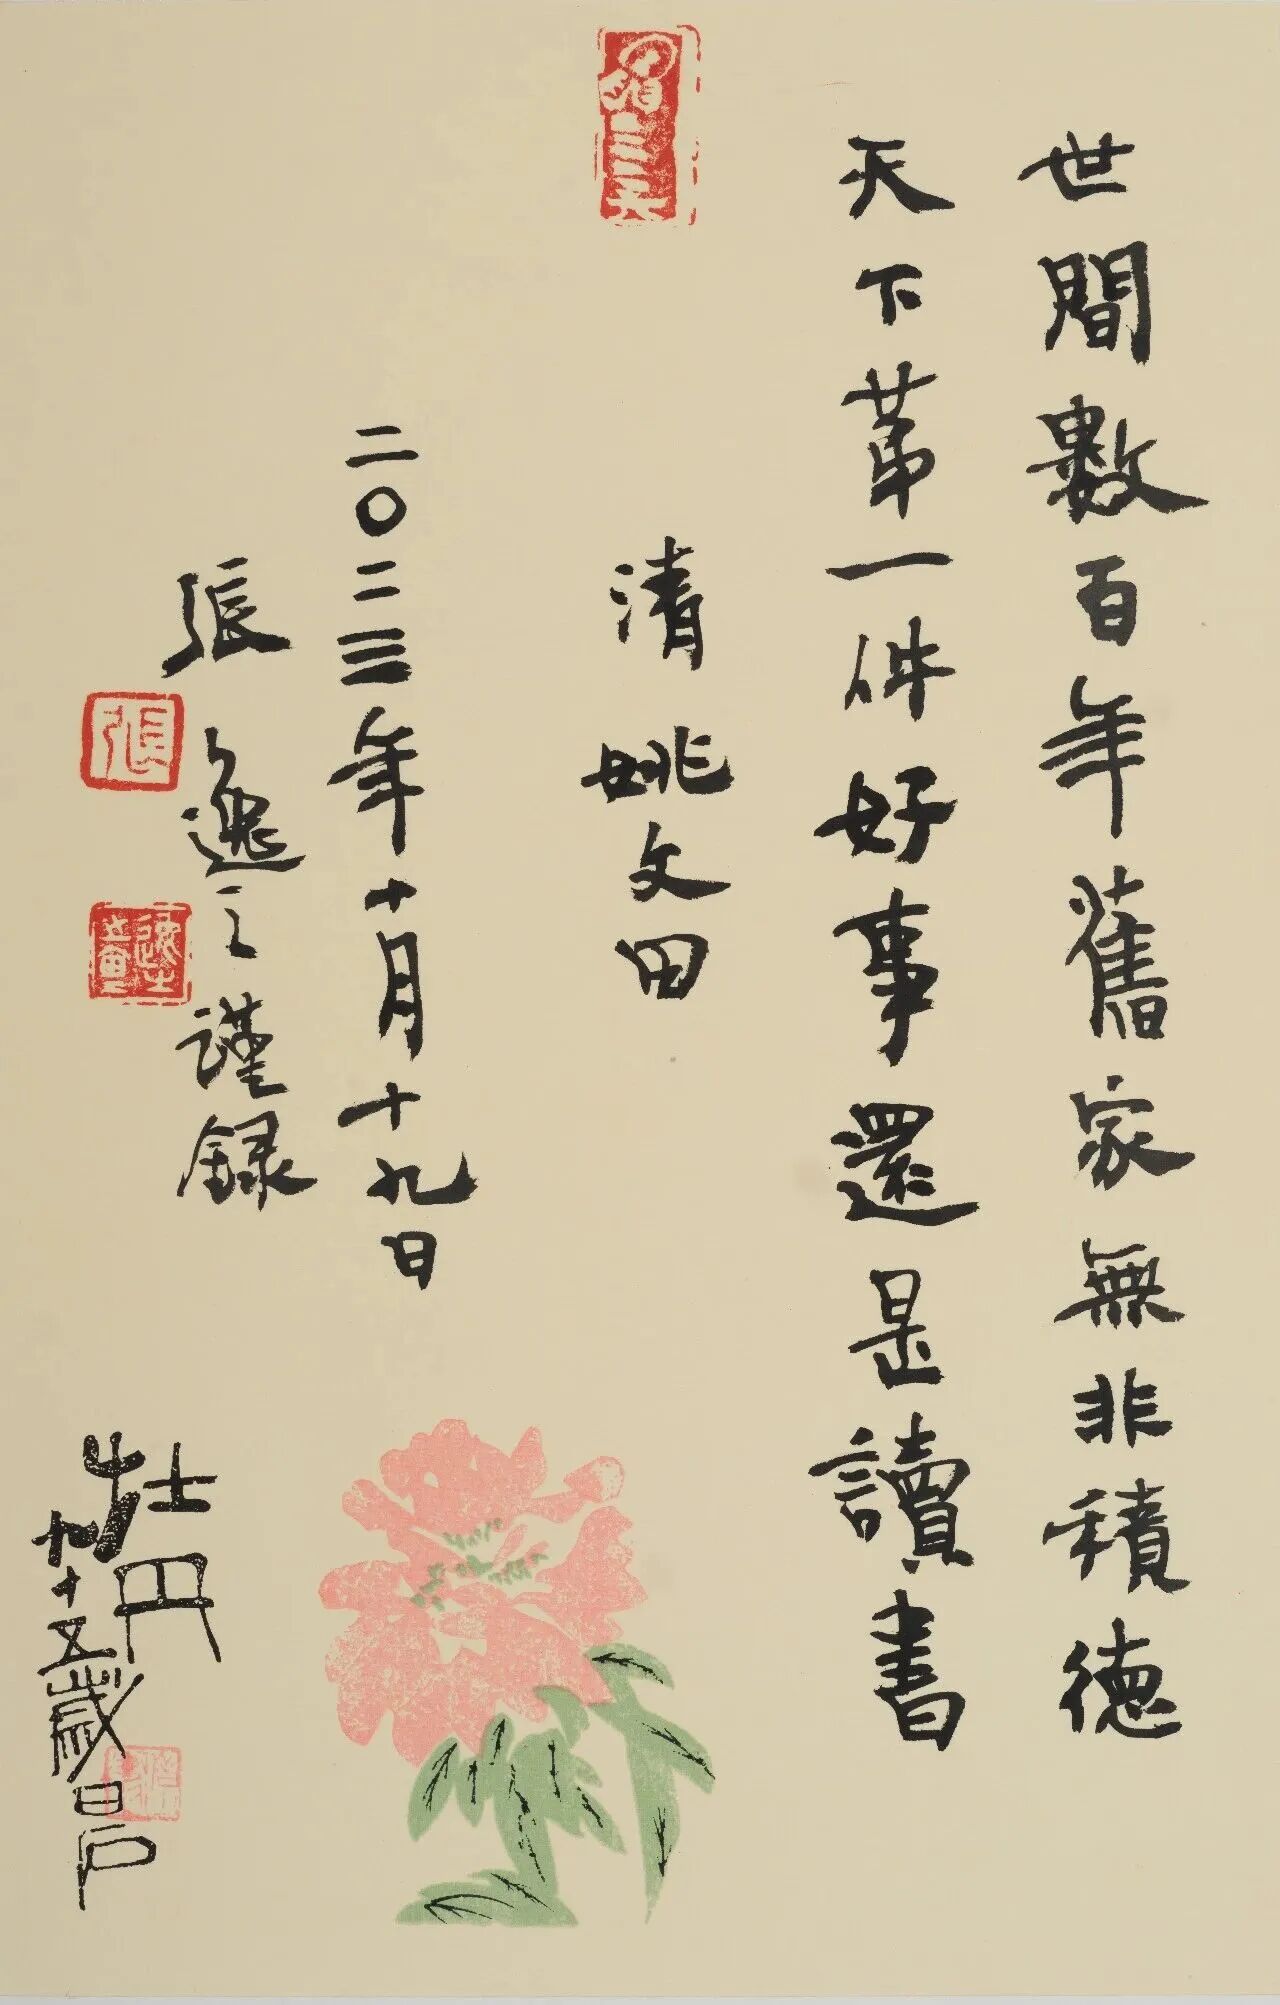 世間數百年舊家無非積德
天下第一件好事還是讀書
清 姚文田
二〇二三年十月十九日
張逸之謹録
張
牡丹
九十五歲